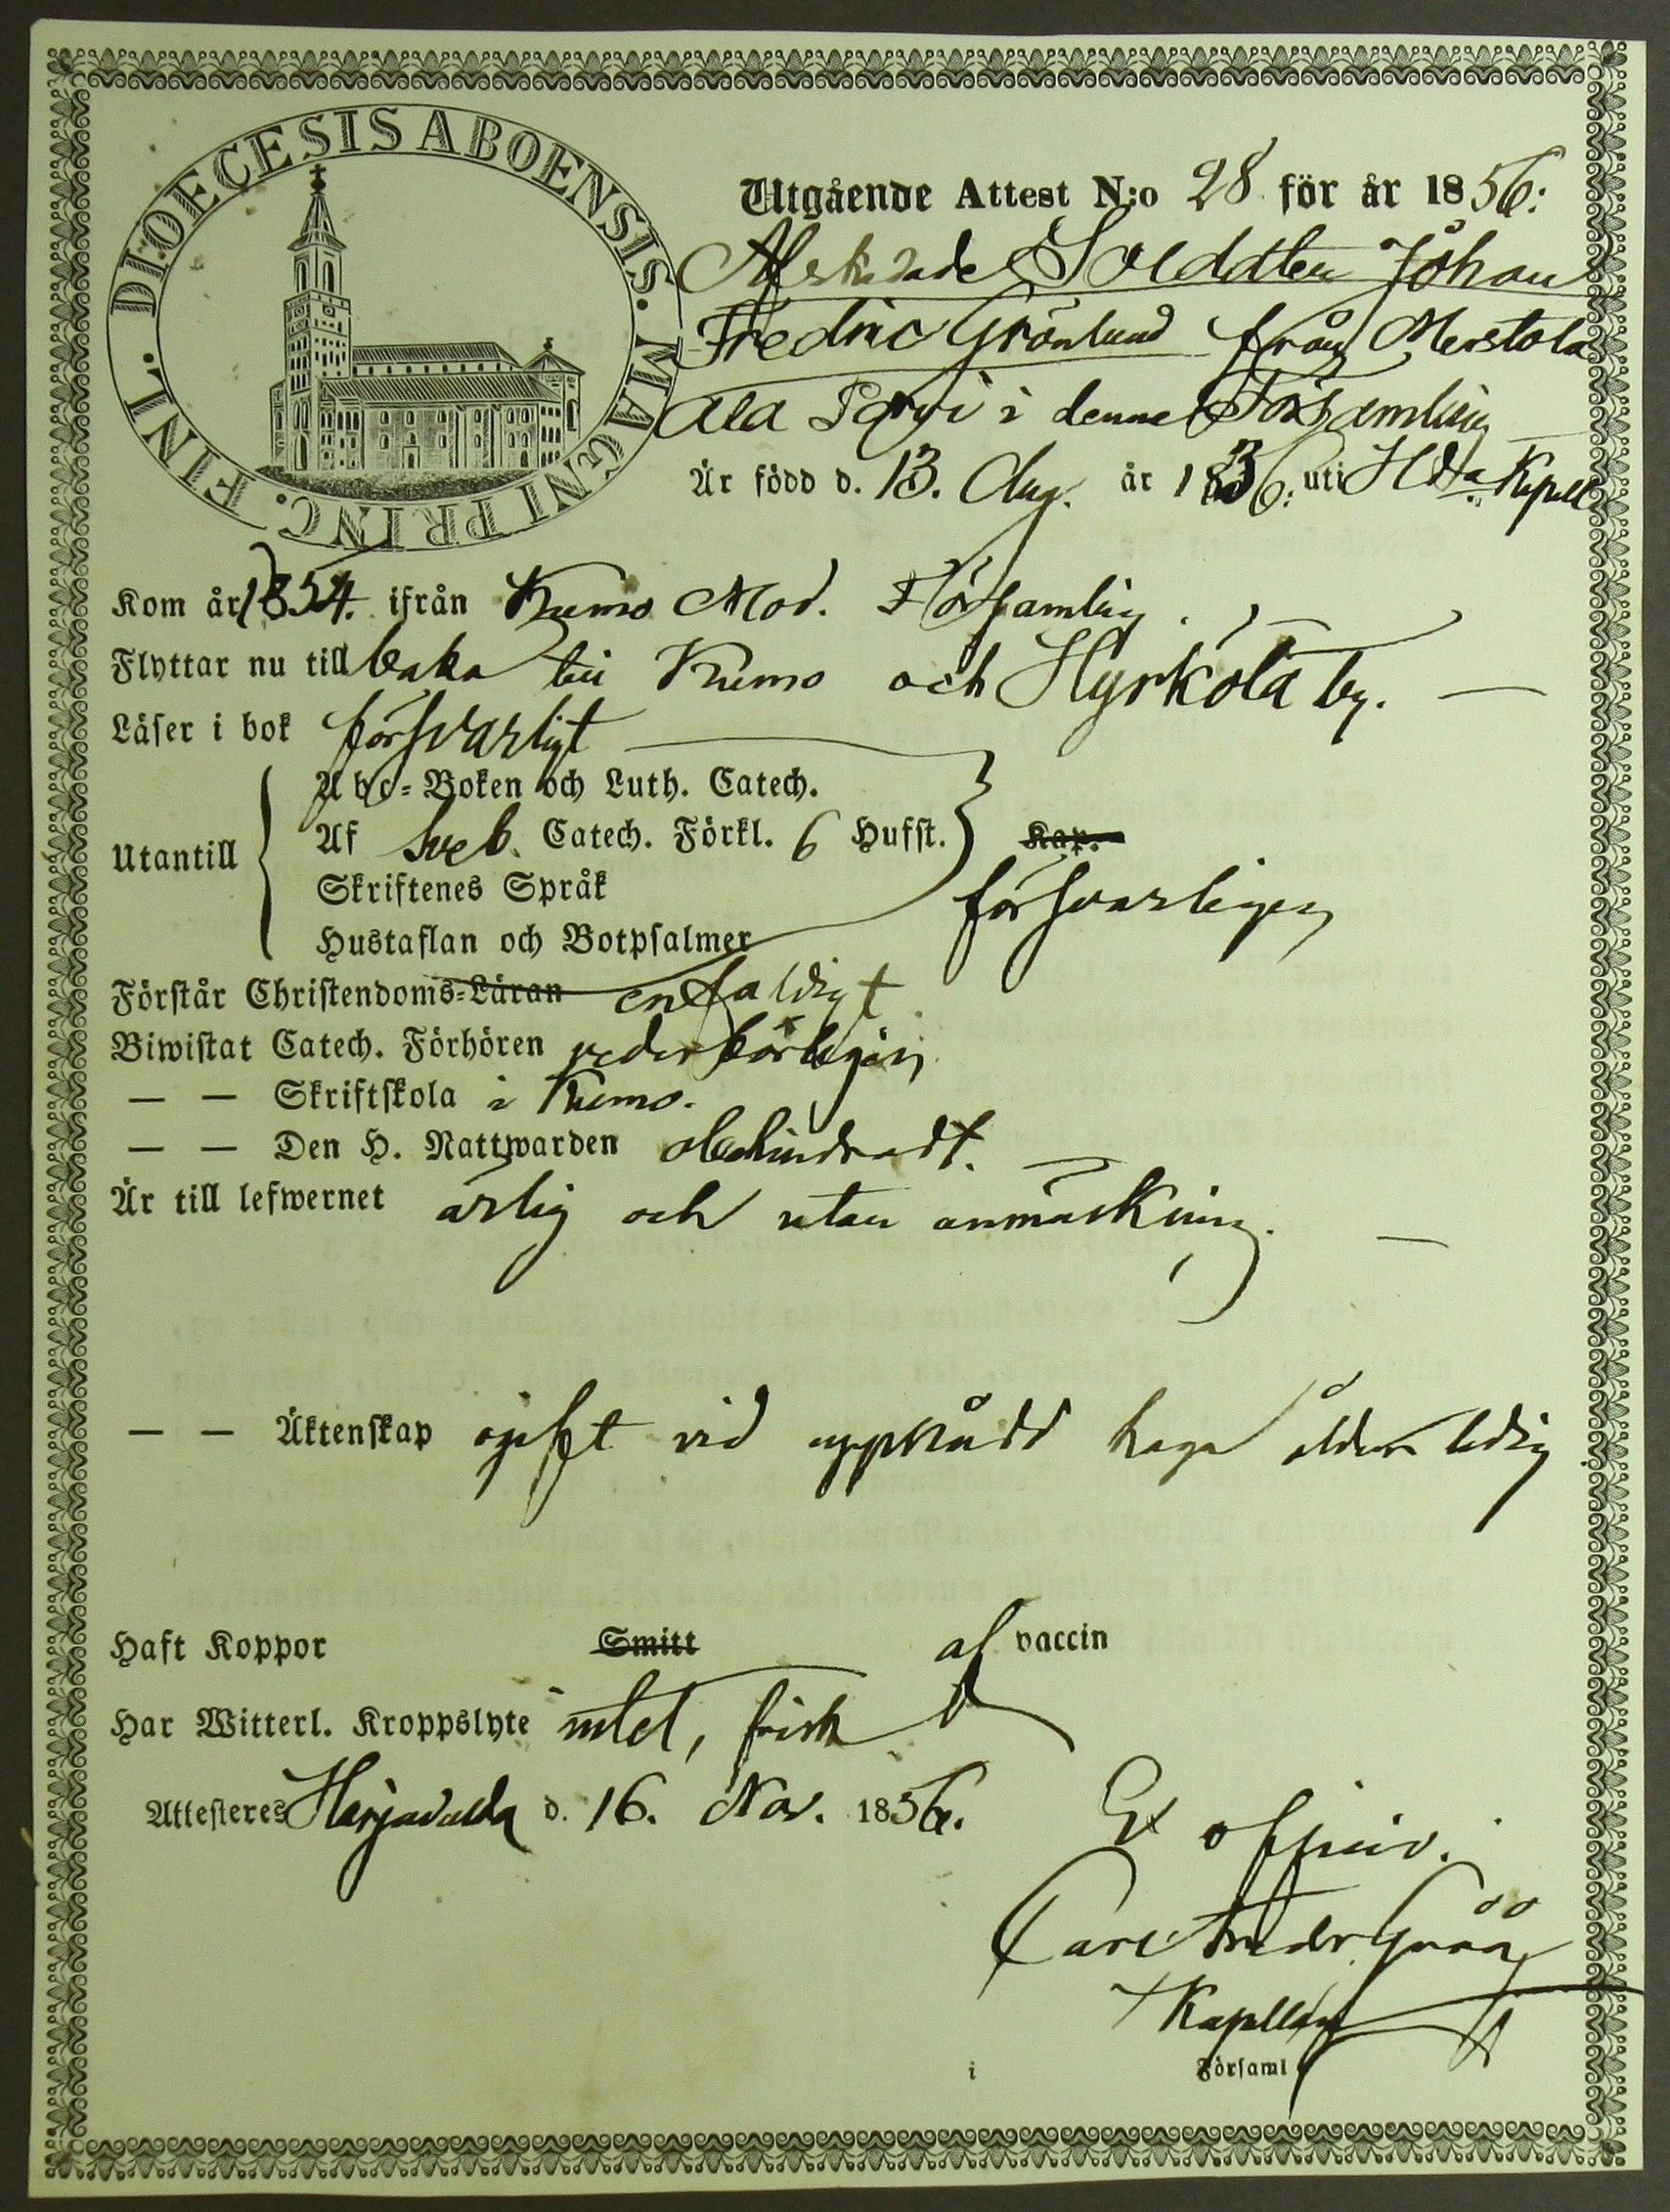 DIOECESIS ABOENSIS. MAGNI PRINC. FINL.
Utgående Attest N:o 28 för år 1856:
Afskedade Soldaten Johan
Fredric Grönlund från Merstola
Ala Parvi i denna Församling
Är född d. 13. Aug. år 1836: uti H:d:a Kapell
Kom år 1854. ifrån Kumo Mod. Församling.
Flyttar nu till baka till Kumo och Hyrkölä by.
Läser i bok försvarligt
Abc-Boken och Luth. Catech.
Utantill Af Sveb. Catech. Förkl. 6 Hufst. Kap.
Skriftenes Språk försvarligen
Hustaflan och Botpsalmer
Förstår Christendoms-Läran enfaldigt
Biwistat Catech. Förhören vederbörligen
— — Skriftskola i Kumo.
— — Den H. Nattwarden obehindradt.
Är till lefwernet ärlig och utan anmärkning.
— — Äktenskap ogift vid uppnådd laga ålder ledig
Haft Koppor Smitt af vaccin
Har Witterl. Kroppslyte intet, frisk
Attesteres Harjavalda d. 16. Nov. 1856.
Ex officio.
Carl Fredr.
Kapellan
i Församl